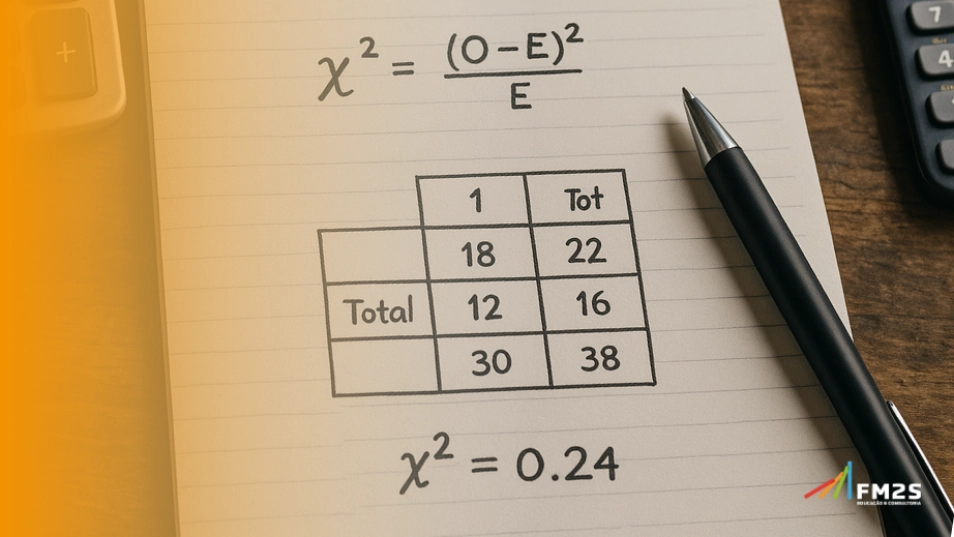 χ² = (O – E)²
E
1 Tot
18 22
Total 12 16
30 38
χ² = 0.24
7
4
+
FM2S
EDUCAÇÃO & CONSULTORIA